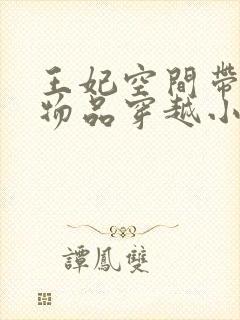 王妃空間帶
物品穿越小
譚鳳雙